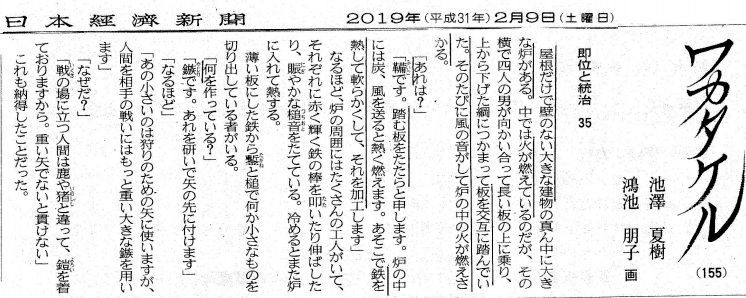 日本経済新聞 2019年(平成31年)2月9日(土曜日)
ワカタケル
(155)
池澤 夏樹
鴻池 朋子 画
即位と統治 35
屋根だけで壁のない大きな建物の真ん中に大き
な炉がある。中では火が燃えているのだが、その
横で四人の男が向かい合って長い板の上に乗り、
上から下げた綱につかまって板を交互に踏んでい
た。そのたびに風の音がして炉の中の火が燃えさ
かる。
「あれは?」
「鞴です。踏む板をたたらと申します。炉の中
には炭、風を送ると熱く燃えます。あそこで鉄を
熱して軟らかくして、それを加工します」
なるほど炉の周囲にはたくさんの工人がいて、
それぞれに赤く輝く鉄の棒を叩いたり伸ばした
り、賑やかな槌音をたてている。冷めるとまた炉
に入れて熱する。
薄い板にした鉄から鏨と槌で何か小さなものを
切り出している者がいる。
「何を作っている?」
「鏃です。あれを研いで矢の先に付けます」
「なるほど」
「あの小さいのは狩りのための矢に使いますが、
人間を相手の戦いにはもっと重い大きな鏃を用い
ます」
「なぜだ?」
「戦の場に立つ人間は鹿や猪と違って、鎧を着
ておりますから。重い矢でないと貫けない」
これも納得したことだった。